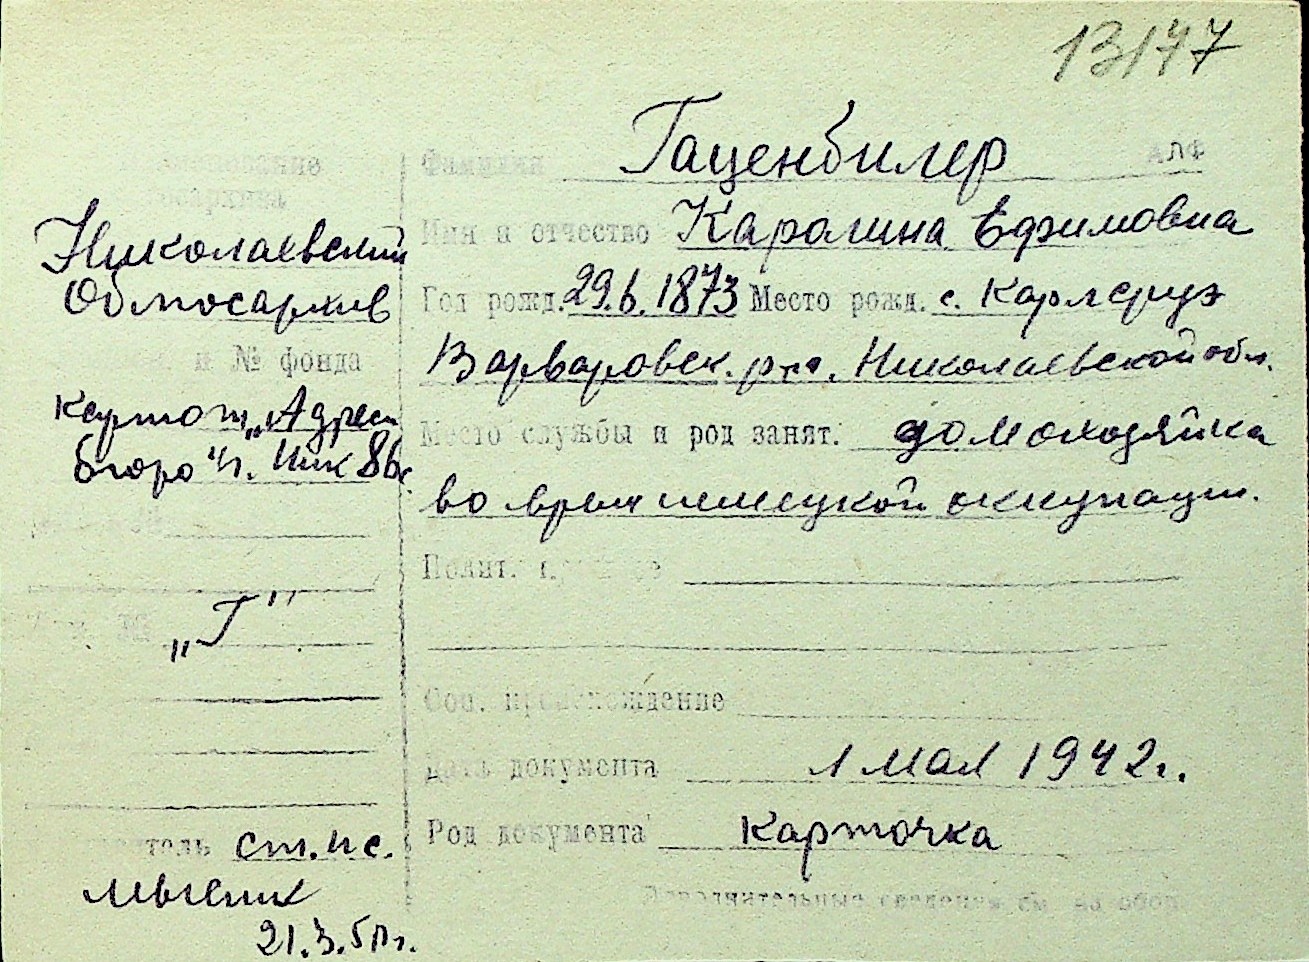 13/77
Фамилия Гаценбилер АЛФ
Имя и отчество Каролина Ефимовна
Год рожд. 29.6.1873 Место рожд. с. Карлсруэ
Варваровск. р-на, Николаевской обл.
Место службы и род занят. домохозяйка
во время немецкой оккупации.
Полит.
Соц. происхождение
Дата документа 1 мая 1942 г.
Род документа Карточка
Дополнительные сведения см. на обор.
Николаевский
Облгосархив
и № фонда
Картот. „Адресн
бюро" г. Ник
„Г"
ст. нс.
21.3.50 г.